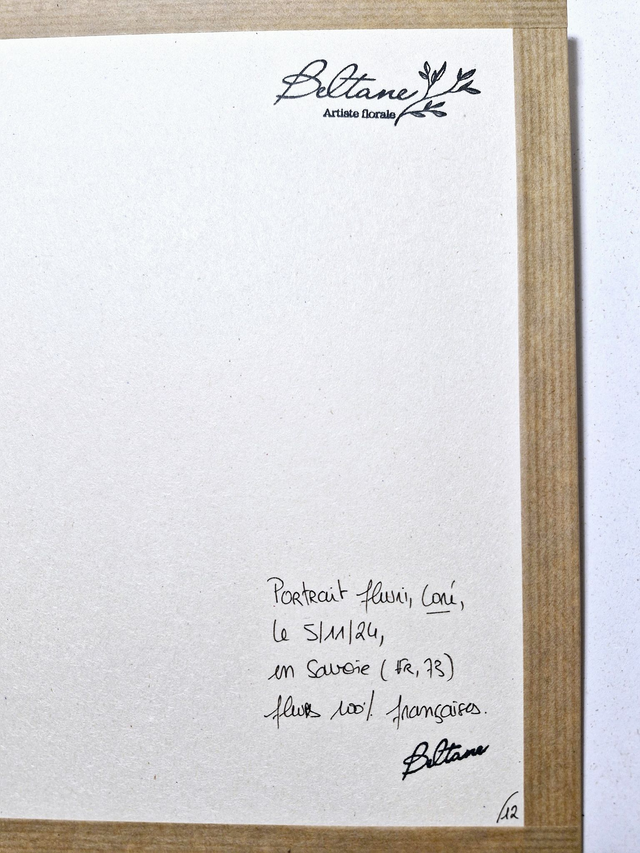 Beltane
Artiste florale
Portrait fleuri, Coré,
le 5/11/24,
en Savoie (FR, 73)
fleurs 100% françaises.
Beltane
/12